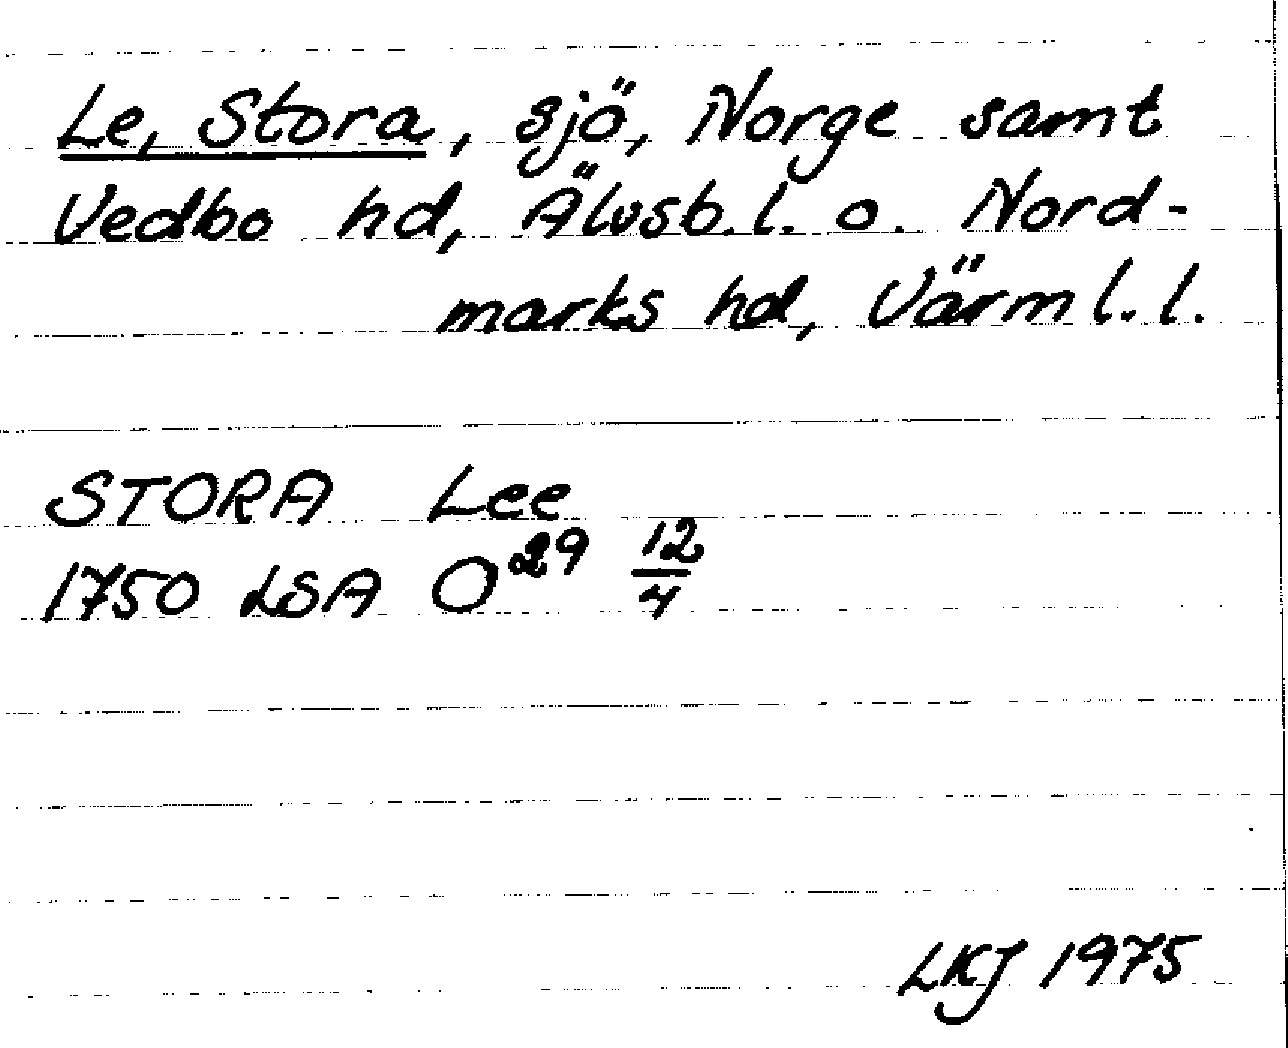 Le, Stora, sjö, Norge samt
Vedbo hd, Älvsb.l. o. Nord-
marks hd, Värml.l.
STORA Lee
1750 LSA O²⁹ 12/4
LKJ 1975